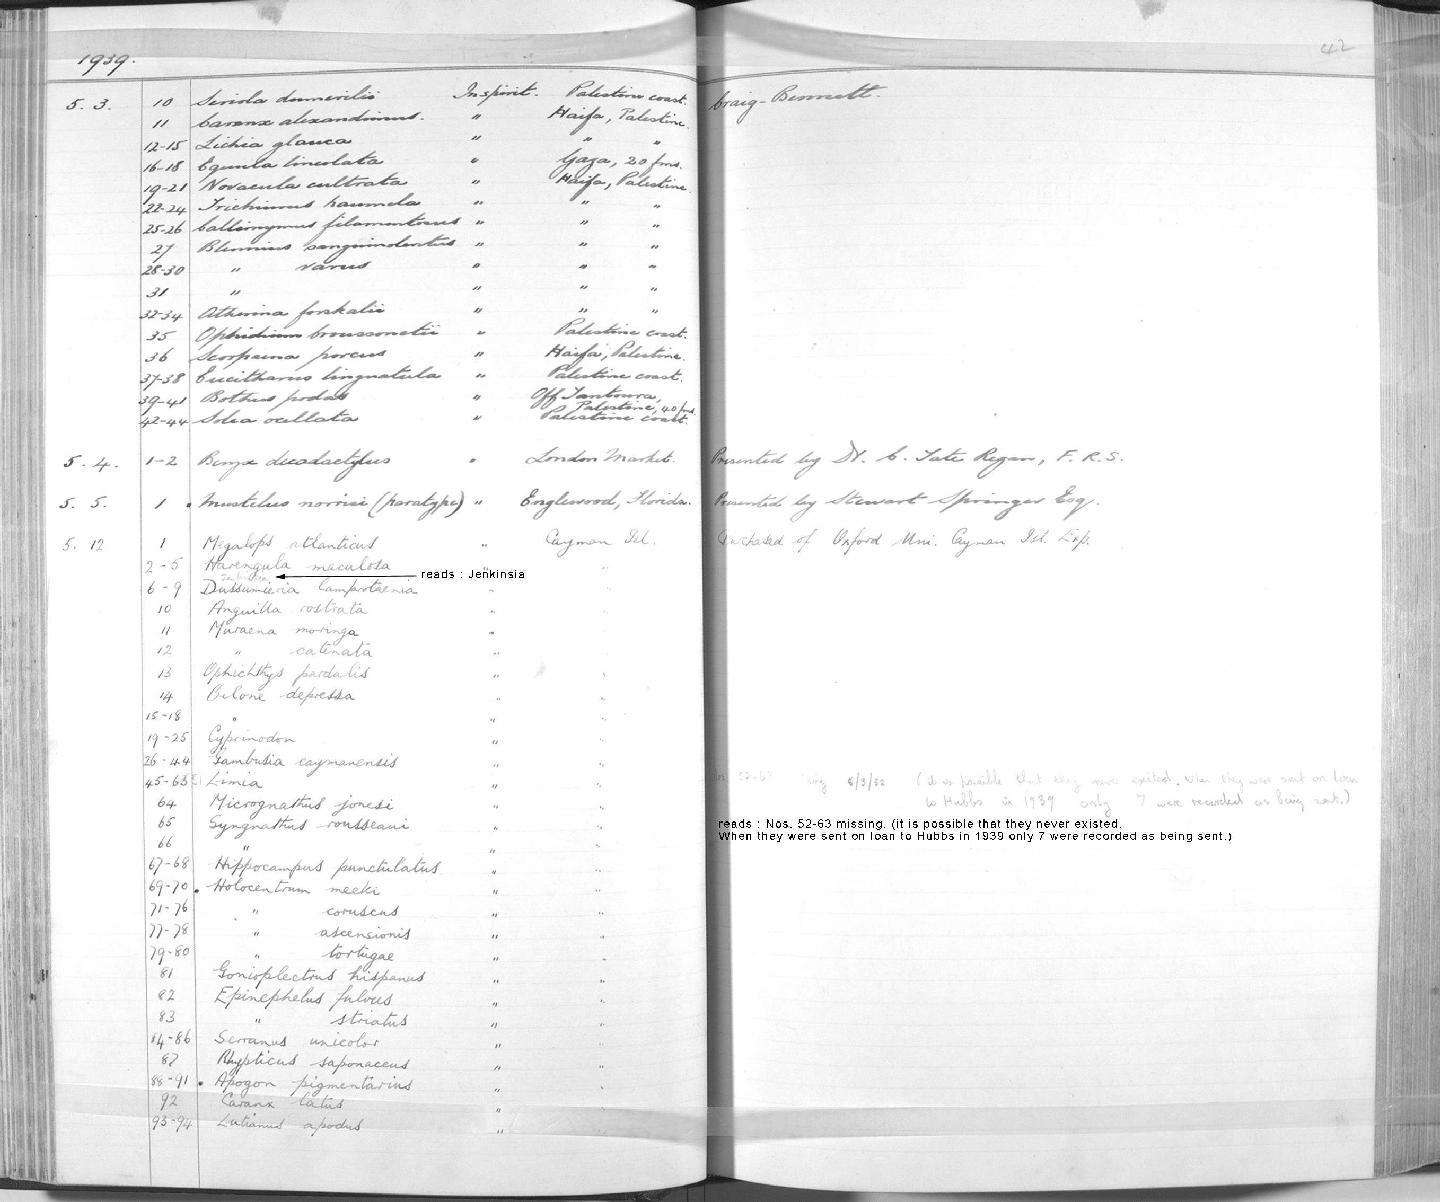 42
1939.
5. 3. 10 Seriola dumerilii In spirit. Palestine coast. Craig-Bennett.
11 Caranx alexandrinus. " Haifa, Palestine.
12-15 Lichia glauca " " "
16-18 Equula lineolata " Gaza, 20 fms.
19-21 Novacula cultrata " Haifa, Palestine.
22-24 Trichiurus haumela " " "
25-26 Callionymus filamentosus " " "
27 Blennius sanguinolentus " " "
28-30 " varus " " "
31 " " " "
32-34 Atherina forskalii " " "
35 Ophidium broussonetii " Palestine coast.
36 Scorpaena porcus " Haifa, Palestine.
37-38 Eucitharus linguatula " Palestine coast.
39-41 Bothus podas " Off Tantoura,
Palestine, 40 fms.
42-44 Solea ocellata " Palestine coast.
5. 4. 1-2 Beryx decadactylus " London Market. Presented by Dr. C. Tate Regan, F.R.S.
5. 5. 1 Mustelus norrisi (paratype) " Englewood, Florida. Presented by Stewart Springer Esq.
5. 12 1 Megalops atlanticus " Cayman Isl. Purchased of Oxford Uni. Cayman Isl. Exp.
2-5 Harengula maculosa "
Jenkinsia reads : Jenkinsia
6-9 Dussumieria lamprotaenia " "
10 Anguilla rostrata " "
11 Muraena moringa " "
12 " catenata " "
13 Ophichthys pardalis " "
14 Belone depressa " "
15-18 " " "
19-25 Cyprinodon " "
26-44 Gambusia caymanensis " "
45-63 Limia " " Nos 52-63 missing 5/3/52 (it is possible that they never existed. When they were sent on loan
64 Micrognathus jonesi " " to Hubbs in 1939 only 7 were recorded as being sent.)
65 Syngnathus rousseaui " " reads : Nos. 52-63 missing. (it is possible that they never existed.
When they were sent on loan to Hubbs in 1939 only 7 were recorded as being sent.)
66 " " "
67-68 Hippocampus punctulatus " "
69-70 Holocentrum meeki " "
71-76 " coruscus " "
77-78 " ascensionis " "
79-80 " tortugae " "
81 Gonioplectrus hispanus " "
82 Epinephelus fulvus " "
83 " striatus " "
14-86 Serranus unicolor " "
87 Rhypticus saponaceus " "
88-91 Apogon pigmentarius " "
92 Caranx latus " "
93-94 Lutianus apodus "